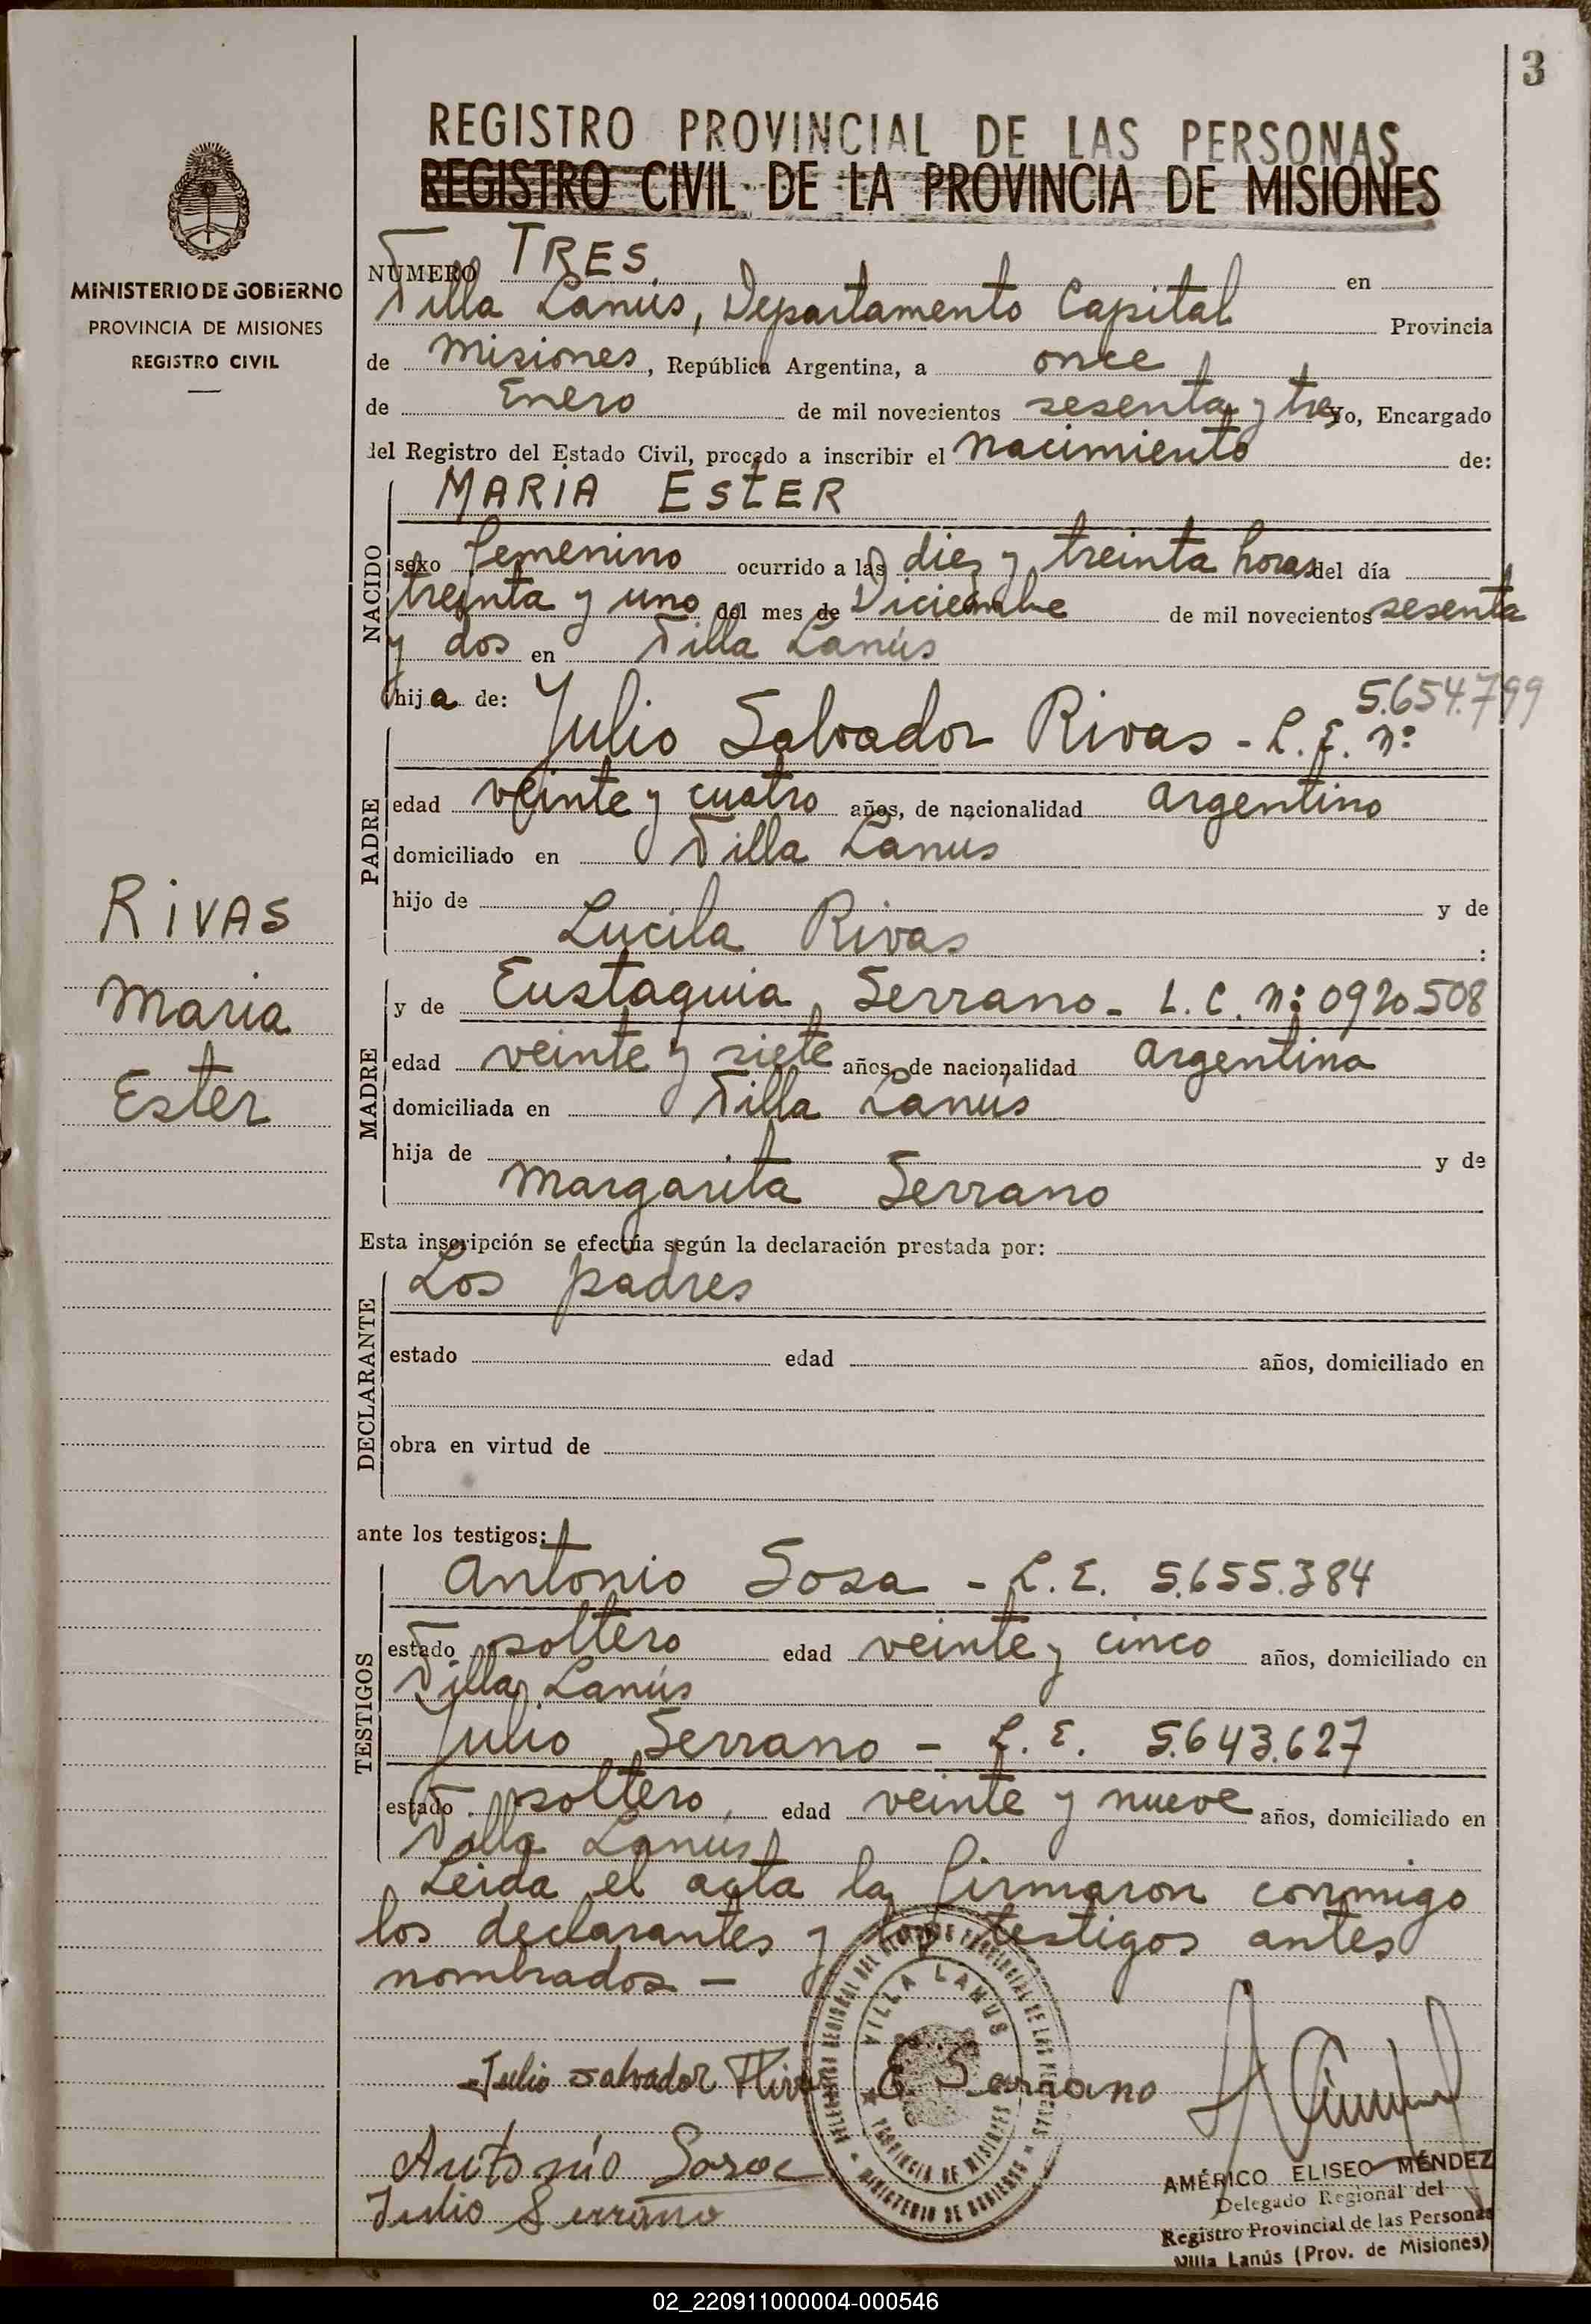 3
REGISTRO PROVINCIAL DE LAS PERSONAS
REGISTRO CIVIL DE LA PROVINCIA DE MISIONES
MINISTERIO DE GOBIERNO
PROVINCIA DE MISIONES
REGISTRO CIVIL
NUMERO TRES en
Villa Lanús, Departamento Capital Provincia
de Misiones, República Argentina, a once
de Enero de mil novecientos sesenta y tres Yo, Encargado
del Registro del Estado Civil, procedo a inscribir el nacimiento de:
MARIA ESTER
NACIDO
sexo femenino ocurrido a las diez y treinta horas del día
treinta y uno del mes de Diciembre de mil novecientos sesenta
y dos en Villa Lanús
hija de:
5.654.799
Julio Salvador Rivas - L. E. nº
PADRE
edad veinte y cuatro años, de nacionalidad argentino
domiciliado en Villa Lanus
hijo de y de
Lucila Rivas :
RIVAS
Maria
Ester
y de Eustaquia Serrano - L. C. nº 0920508
MADRE
edad veinte y siete años, de nacionalidad argentina
domiciliada en Villa Lanus
hija de y de
Margarita Serrano
Esta inscripción se efectúa según la declaración prestada por:
Los padres
DECLARANTE
estado edad años, domiciliado en
obra en virtud de
ante los testigos:
Antonio Sosa - L. E. 5.655.384
TESTIGOS
estado soltero edad veinte y cinco años, domiciliado en
Villa Lanús
Julio Serrano - L. E. 5.643.627
estado soltero, edad veinte y nueve años, domiciliado en
Villa Lanús
Leida el acta la firmaron conmigo
los declarantes y los testigos antes
nombrados -
VILLA LANUS
PROVINCIA DE MISIONES
MINISTERIO DE GOBIERNO
Julio Salvador Rivas E Serrano
Antonio Sosa
Julio Serrano
AMÉRICO ELISEO MÉNDEZ
Delegado Regional del
Registro Provincial de las Personas
Villa Lanús (Prov. de Misiones)
02_220911000004-000546